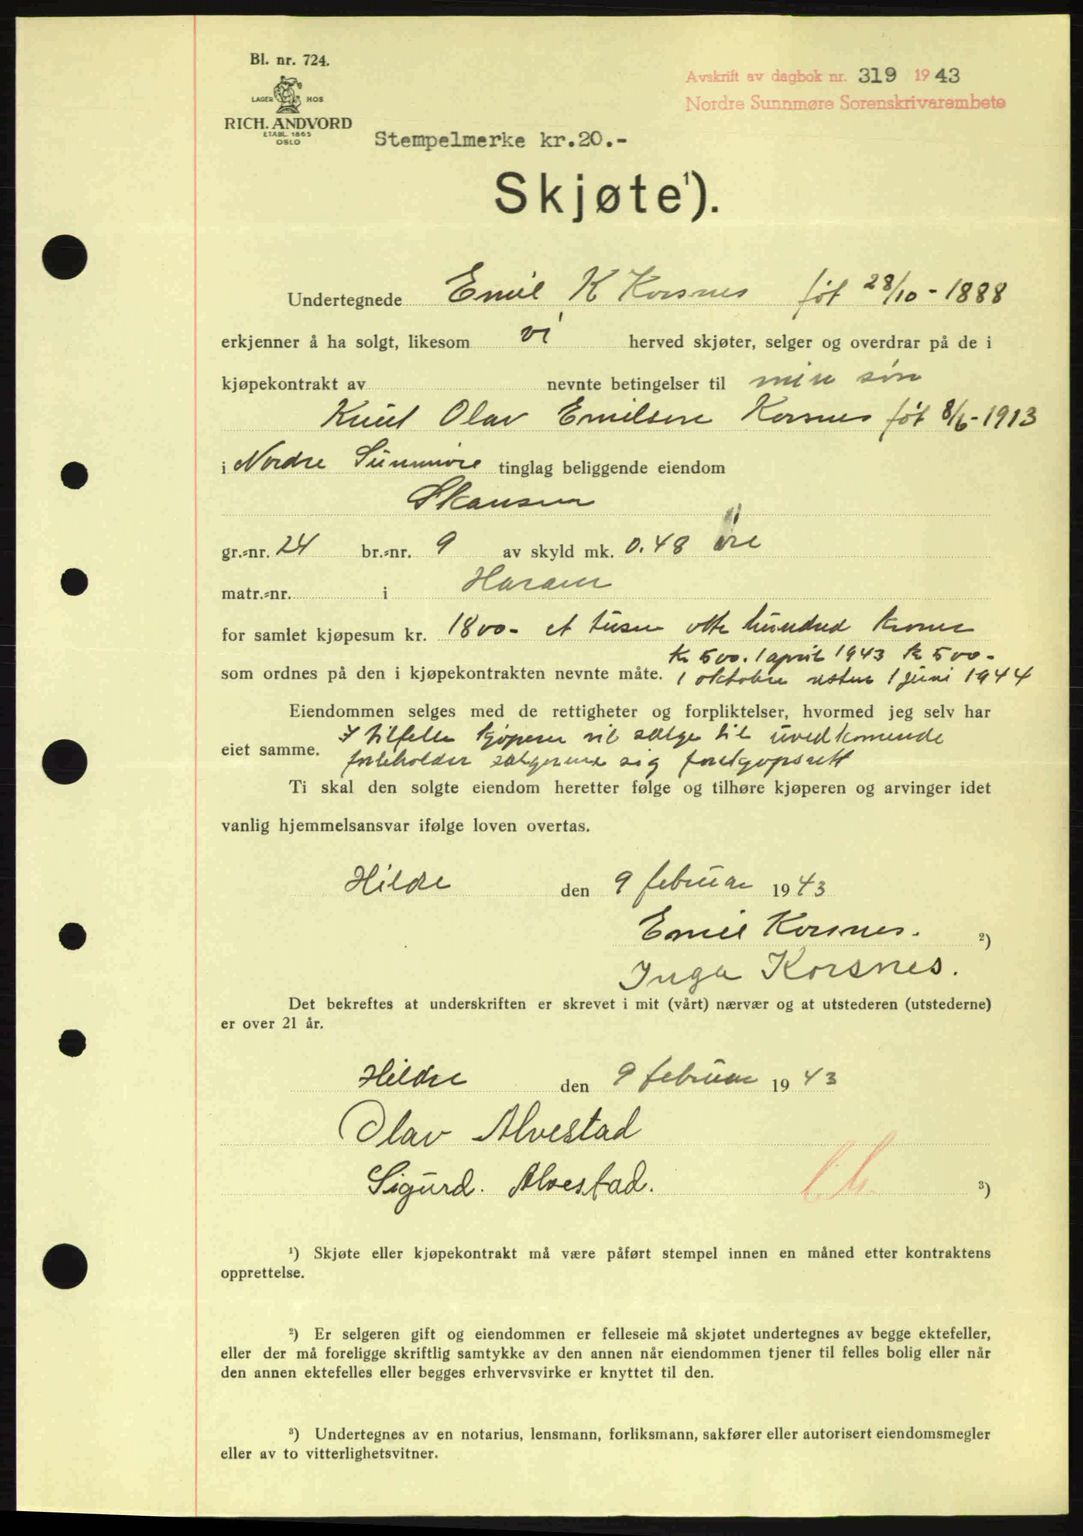 Bl. nr. 724.
LAGER HOS
RICH. ANDVORD
ETABL. 1865
OSLO
Avskrift av dagbok nr. 319 1943
Nordre Sunnmøre Sorenskrivarembete
Stempelmerke kr.20.-
Skjøte¹).
Undertegnede Emil K Korsnes føt 28/10 - 1888
erkjenner å ha solgt, likesom vi herved skjøter, selger og overdrar på de i
kjøpekontrakt av nevnte betingelser til min søn
Knut Olav Emilsen Korsnes føt 8/6 - 1913
i Nordre Sunnmøre tinglag beliggende eiendom
Skansen
gr.-nr. 24 br.-nr. 9 av skyld mk. 0.48 øre
matr.-nr. i Haram
for samlet kjøpesum kr. 1800- et tusen otte hundred kroner
kr 500. 1 april 1943 kr 500-
som ordnes på den i kjøpekontrakten nevnte måte. 1 oktober resten 1 juni 1944
Eiendommen selges med de rettigheter og forpliktelser, hvormed jeg selv har
eiet samme. I tilfelle kjøperen vil sælge til uvedkomende
forbeholder sælgerene sig forkjøpsrett
Ti skal den solgte eiendom heretter følge og tilhøre kjøperen og arvinger idet
vanlig hjemmelsansvar ifølge loven overtas.
Hildre den 9 februar 1943
Emil Korsnes. ²)
Inga Korsnes.
Det bekreftes at underskriften er skrevet i mit (vårt) nærvær og at utstederen (utstederne)
er over 21 år.
Hildre den 9 februar 1943
Olav Alvestad
Sigurd. Alvestad. ³)
¹) Skjøte eller kjøpekontrakt må være påført stempel innen en måned etter kontraktens
opprettelse.
²) Er selgeren gift og eiendommen er felleseie må skjøtet undertegnes av begge ektefeller,
eller der må foreligge skriftlig samtykke av den annen når eiendommen tjener til felles bolig eller når
den annen ektefelles eller begges erhvervsvirke er knyttet til den.
³) Undertegnes av en notarius, lensmann, forliksmann, sakfører eller autorisert eiendomsmegler
eller av to vitterlighetsvitner.